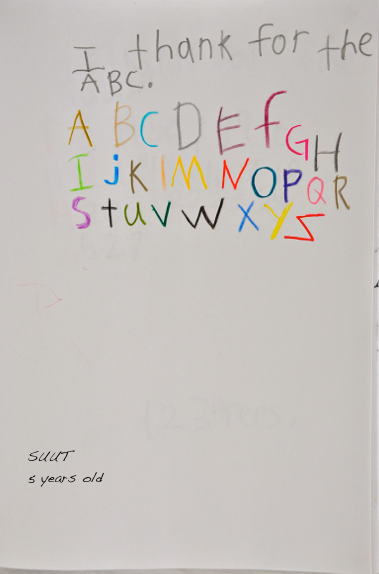 I thank for the
ABC.
A B C D E f G H
I j K l M N O P Q R
S t u v W X Y Z
SUUT
5 years old